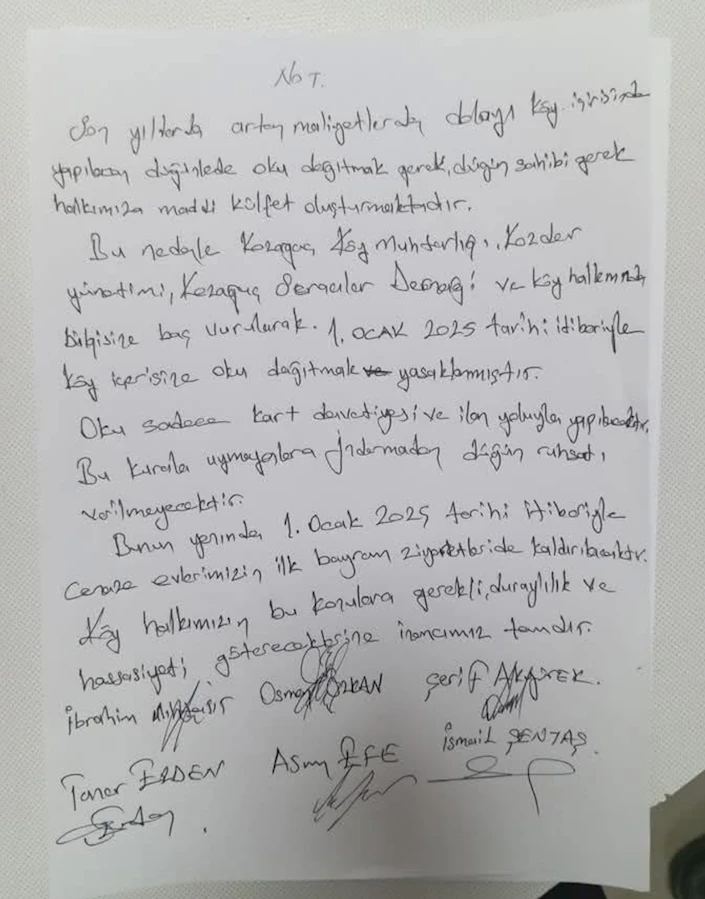 NOT.
Son yıllarda artan maliyetlerden dolayı Köy içirisinde
yapılacan düğünlede oku dağıtmak gerek, düğün sahibi gerek
halkımıza maddi külfet oluşturmaktadır.
Bu nedenle Kozağaç Köy Muhtarlığı, Kozder
yönetimi, Kozağaç Seracılar Derneği ve Köy halkımında
bilgisine baş vurularak. 1. OCAK 2025 tarihi itibariyle
Köy içerisine oku dağıtmak yasaklanmıştır.
Oku sadece kart davetiyesi ve ilan yoluyla yapılacaktır.
Bu kurala uymayanlara Jandarmadan düğün ruhsatı
verilmeyecektir.
Bunun yanında 1. Ocak 2025 tarihi itibariyle
Cenaze evlerimizin ilk bayram ziyaretleride kaldırılacaktır.
Köy halkımızın bu konulara gerekli, duraylılık ve
hassasiyeti göstereceklerine inancımız tamdır.
İbrahim Osman ÖZKAN Şerif
Taner ERDEN Asım EFE İsmail ŞENTAŞ